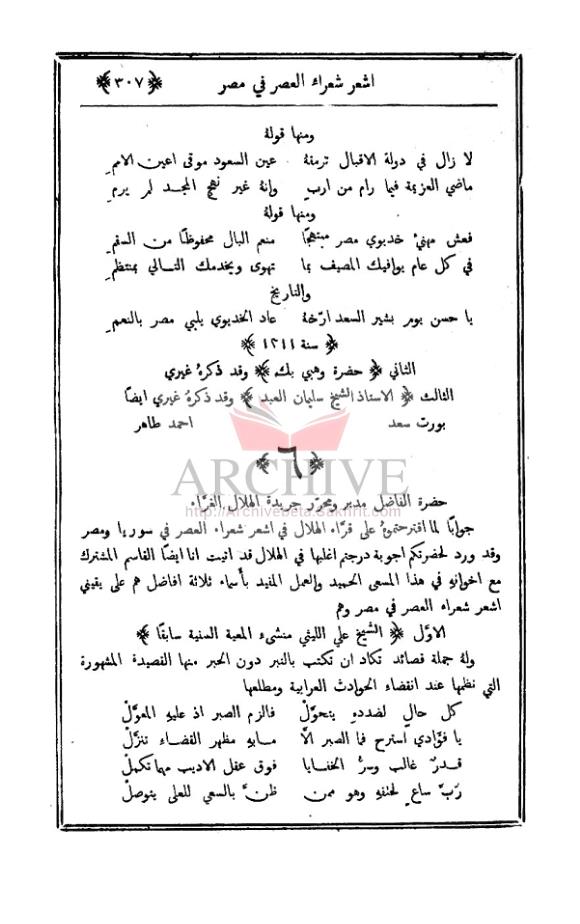 اشعر شعراء العصر في مصر ﴿٣٠٧﴾
ومنها قولهُ
لا زال في دولة الاقبال ترمقهُ عين السعود موقى اعين الامم
ماضي العزيمة فيما رام من اربٍ وانهُ غير نهج المجد لم يرمِ
ومنها قولهُ
فعش مهنيء خديوي مصر مبتهجًا منعم البال محفوظًا من السقم
في كل عام يوافيك المصيف بما تهوى ويخدمك التالي بمنتظم
والتاريخ
يا حسن يوم بشير السعد ارّخهُ عاد الخديوي يلبي مصر بالنعم
﴿ سنة ١٣١١ ﴾
الثاني ﴿ حضرة وهبي بك ﴾ وقد ذكرهُ غيري
الثالث ﴿ الاستاذ الشيخ سليمان العبد ﴾ وقد ذكرهُ غيري ايضًا
بورت سعد احمد طاهر
﴿ ٦ ﴾
ARCHIVE
http://Archivebeta.Sakhrit.com
حضرة الفاضل مدير ومحرّر جريدة الهلال الغرَّاء
جوابًا لما اقترحتموهُ على قرَّاء الهلال في اشعر شعراء العصر في سوريا ومصر
وقد ورد لحضرتكم اجوبة درجتم اغلبها في الهلال قد اتيت انا ايضًا القاسم المشترك
مع اخوانهِ في هذا المسعى الحميد والعمل المفيد بأسماء ثلاثة افاضل هم على يقيني
اشعر شعراء العصر في مصر وهم
الاوَّل ﴿ الشيخ علي الليثي منشىء المعية السنية سابقًا ﴾
ولهُ جملة قصائد تكاد ان تكتب بالتبر دون الحبر منها القصيدة المشهورة
التي نظمها عند انقضاء الحوادث العرابية ومطلعها
كل حالٍ لضددهِ يتحوَّلْ فالزم الصبر اذ عليهِ المعوَّلْ
يا فؤادي استرح فما الصبر الَّا ما بهِ مظهر القضاء تنزَّلْ
قدرٌ غالب وسرُّ الخفايا فوق عقل الاديب مهما تكملْ
ربَّ ساعٍ لحتفهِ وهو ممن ظنَّ بالسعي للعلى يتوصلْ